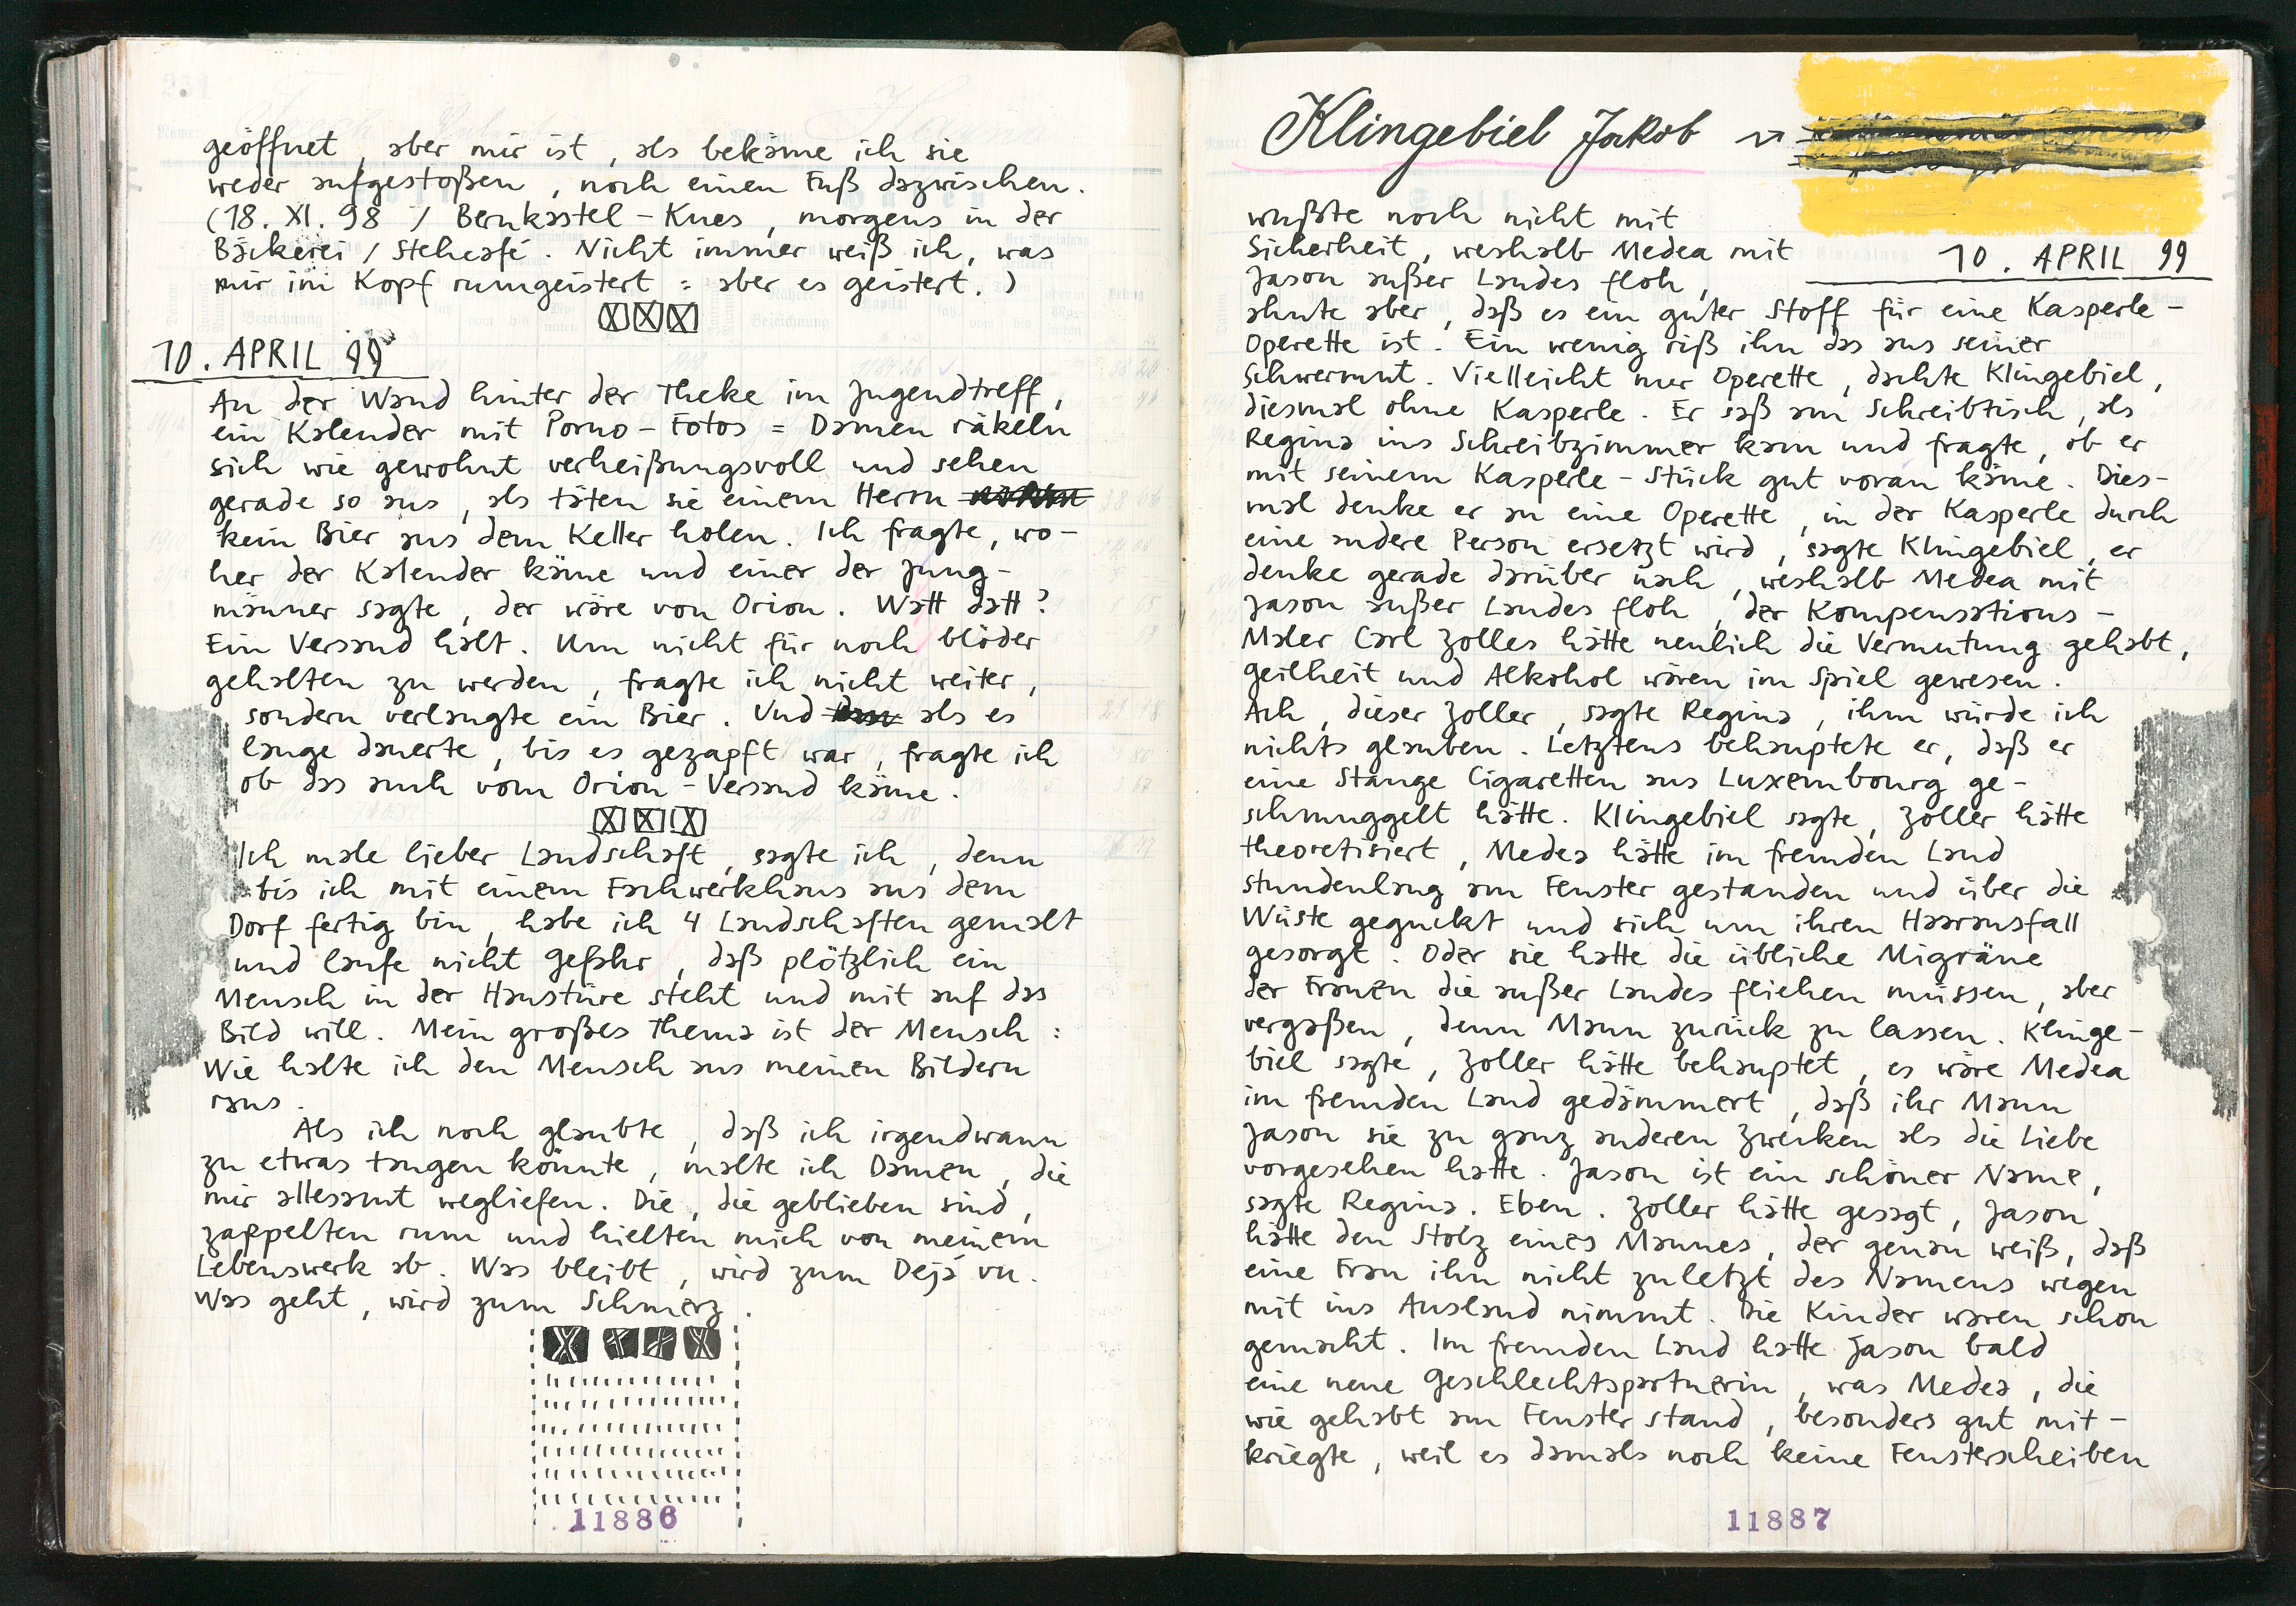 geöffnet, aber mir ist, als bekäme ich sie
weder aufgestoßen, noch einen Fuß dazwischen.
(18. XI. 98 / Bernkastel-Kues, morgens in der
Bäckerei / Stehcafé. Nicht immer weiß ich, was
mir im Kopf rumgeistert = aber es geistert.)
10. APRIL 99
An der Wand hinter der Theke im Jugendtreff,
ein Kalender mit Porno-Fotos = Damen räkeln
sich wie gewohnt verheißungsvoll und sehen
gerade so aus, als täten sie einem Herrn
kein Bier aus dem Keller holen. Ich fragte, wo-
her der Kalender käme und einer der Jung-
männer sagte, der wäre von Orion. Watt datt?
Ein Versand halt. Um nicht für noch blöder
gehalten zu werden, fragte ich nicht weiter,
sondern verlangte ein Bier. Und als es
lange dauerte, bis es gezapft war, fragte ich
ob das auch vom Orion-Versand käme.
Ich male lieber Landschaft, sagte ich, denn
bis ich mit einem Fachwerkhaus aus dem
Dorf fertig bin, habe ich 4 Landschaften gemalt
und laufe nicht Gefahr, daß plötzlich ein
Mensch in der Haustüre steht und mit auf das
Bild will. Mein großes Thema ist der Mensch:
Wie halte ich den Mensch aus meinen Bildern
raus.
Als ich noch glaubte, daß ich irgendwann
zu etwas taugen könnte, malte ich Damen, die
mir allesamt wegliefen. Die, die geblieben sind,
zappelten rum und hielten mich von meinem
Lebenswerk ab. Was bleibt, wird zum Dejà vu.
Was geht, wird zum Schmerz.
11886
Klingebiel Jakob
10. APRIL 99
wußte noch nicht mit
Sicherheit, weshalb Medea mit
Jason außer Landes floh,
ahnte aber, daß es ein guter Stoff für eine Kasperle-
Operette ist. Ein wenig riß ihn das aus seiner
Schwermut. Vielleicht nur Operette, dachte Klingebiel,
diesmal ohne Kasperle. Er saß am Schreibtisch, als
Regina ins Schreibzimmer kam und fragte, ob er
mit seinem Kasperle-Stück gut voran käme. Dies-
mal denke er an eine Operette, in der Kasperle durch
eine andere Person ersetzt wird, sagte Klingebiel, er
denke gerade darüber nach, weshalb Medea mit
Jason außer Landes floh, der Kompensations-
Maler Carl Zolles hätte neulich die Vermutung gehabt,
Geilheit und Alkohol wären im Spiel gewesen.
Ach, dieser Zoller, sagte Regina, ihm würde ich
nichts glauben. Letztens behauptete er, daß er
eine Stange Cigaretten aus Luxembourg ge-
schmuggelt hätte. Klingebiel sagte, Zoller hätte
theoretisiert, Medea hätte im fremden Land
stundenlang am Fenster gestanden und über die
Wüste geguckt und sich um ihren Haarausfall
gesorgt. Oder sie hatte die übliche Migräne
der Frauen die außer Landes fliehen müssen, aber
vergaßen, denn Mann zurück zu lassen. Klinge-
biel sagte, Zoller hätte behauptet, es wäre Medea
im fremden Land gedämmert, daß ihr Mann
Jason sie zu ganz anderen Zwecken als die Liebe
vorgesehen hatte. Jason ist ein schöner Name,
sagte Regina. Eben. Zoller hätte gesagt, Jason
hätte den Stolz eines Mannes, der genau weiß, daß
eine Frau ihn nicht zuletzt des Namens wegen
mit ins Ausland nimmt. Die Kinder waren schon
gemacht. Im fremden Land hatte Jason bald
eine neue Geschlechtspartnerin, was Medea, die
wie gehabt am Fenster stand, besonders gut mit-
kriegte, weil es damals noch keine Fensterscheiben
11887